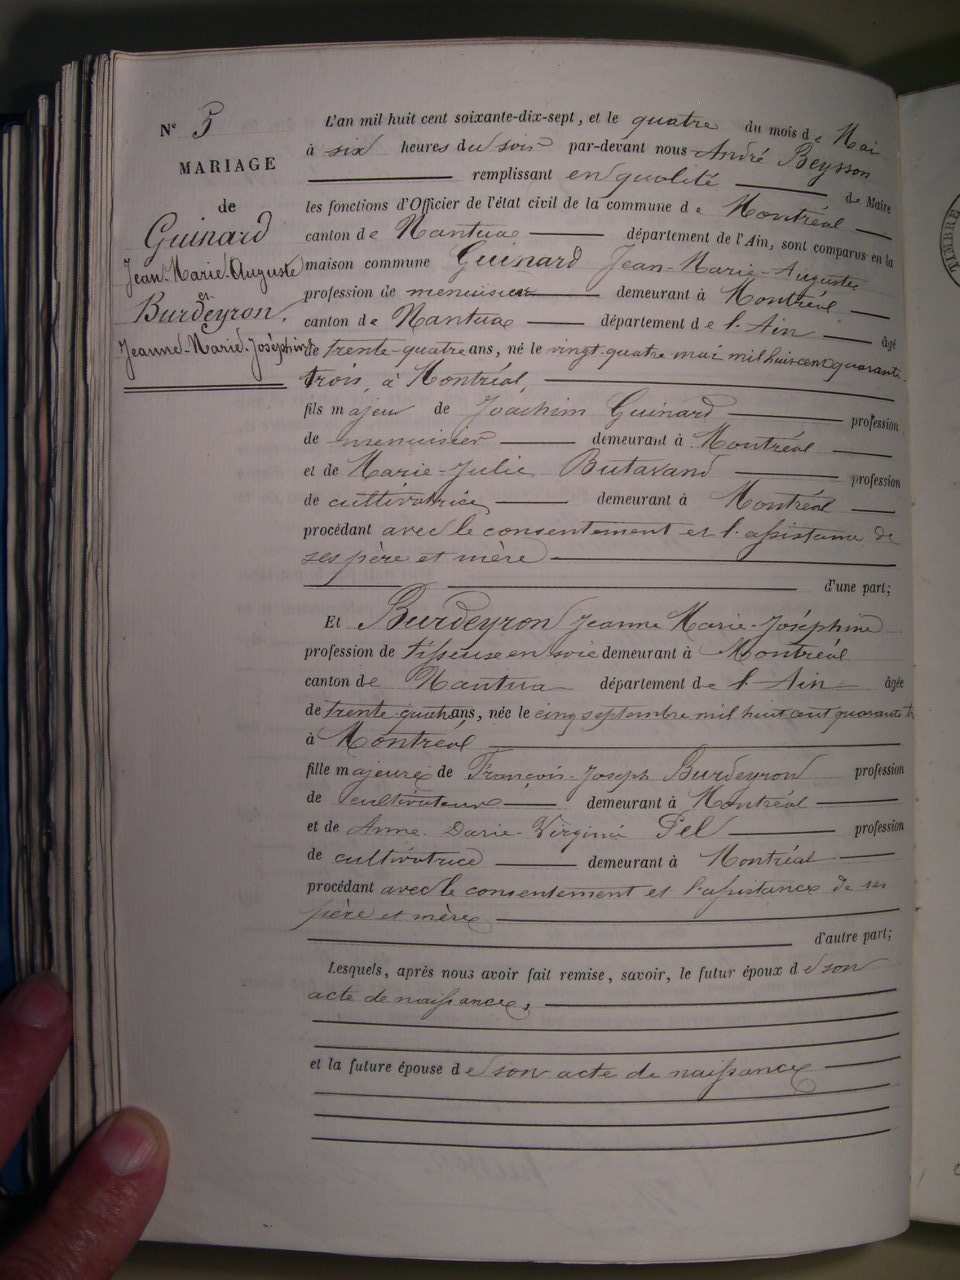 N° 5
MARIAGE
de
Guinard
Jean-Marie-Auguste
et
Burdeyron,
Jeanne-Marie-Joséphine
L'an mil huit cent soixante-dix-sept, et le quatre du mois de Mai
à six heures du soir par-devant nous André Beysson
remplissant en qualité de Maire
les fonctions d'Officier de l'état civil de la commune de Montréal
canton de Nantua département de l'Ain, sont comparus en la
maison commune Guinard Jean-Marie-Auguste
profession de menuisier demeurant à Montréal
canton de Nantua département de l'Ain âgé
de trente-quatre ans, né le vingt-quatre mai mil huit cent quarante-
trois, à Montréal,
fils majeur de Joachim Guinard profession
de menuisier demeurant à Montréal
et de Marie-Julie Butavand profession
de cultivatrice demeurant à Montréal
procédant avec le consentement et l'assistance de
ses père et mère
d'une part;
Et Burdeyron Jeanne Marie-Joséphine
profession de tisseuse en soie demeurant à Montréal
canton de Nantua département de l'Ain âgée
de trente-quatre ans, née le cinq septembre mil huit cent quarante
à Montréal
fille majeure de François-Joseph Burdeyron profession
de cultivateur demeurant à Montréal
et de Anne-Darie-Virginie Pel profession
de cultivatrice demeurant à Montréal
procédant avec le consentement et l'assistance de ses
père et mère
d'autre part;
Lesquels, après nous avoir fait remise, savoir, le futur époux de son
acte de naissance,
et la future épouse de son acte de naissance
TIMBRE